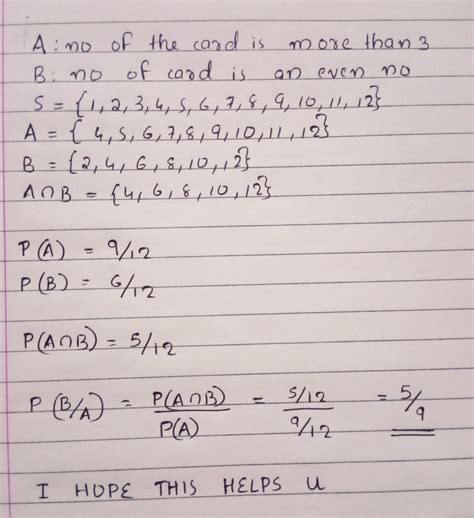 A : no of the card is more than 3
B : no of card is an even no
S = {1,2,3,4,5,6,7,8,9,10,11,12}
A = { 4,5,6,7,8,9,10,11,12}
B = {2,4,6,8,10,12}
A∩B = {4,6,8,10,12}
P(A) = 9/12
P(B) = 6/12
P(A∩B) = 5/12
P(B/A) = P(A∩B)/P(A) = 5/12 / 9/12 = 5/9
I HOPE THIS HELPS U